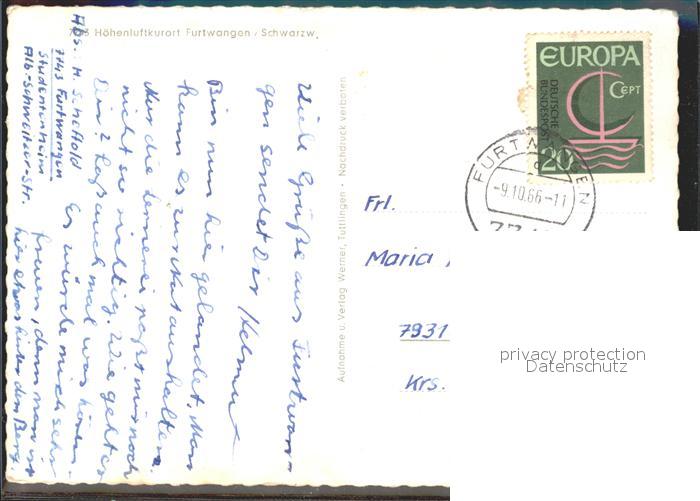 7743 Höhenluftkurort Furtwangen / Schwarzw.
Abs.: H. Scheffold
7743 Furtwangen
Studentenheim
Alb.-Schweitzer-Str.
Viele Grüße aus Furtwan-
gen sendet Dir Helmut
Bin nun hier gelandet. Man
kann es zur Not aushalten.
Nur die Lernerei paßt mir noch
nicht so richtig. Wie geht es
Dir? Laß auch mal was hören.
Es würde mich sehr
freuen, denn man ist
hier etwas hinter dem Berg.
Aufnahme u. Verlag Werner, Tuttlingen · Nachdruck verboten
EUROPA
CEPT
DEUTSCHE
BUNDESPOST
20
FURTWANGEN
-9.10.66-11
Frl.
Maria
7931
Krs.
privacy protection
Datenschutz